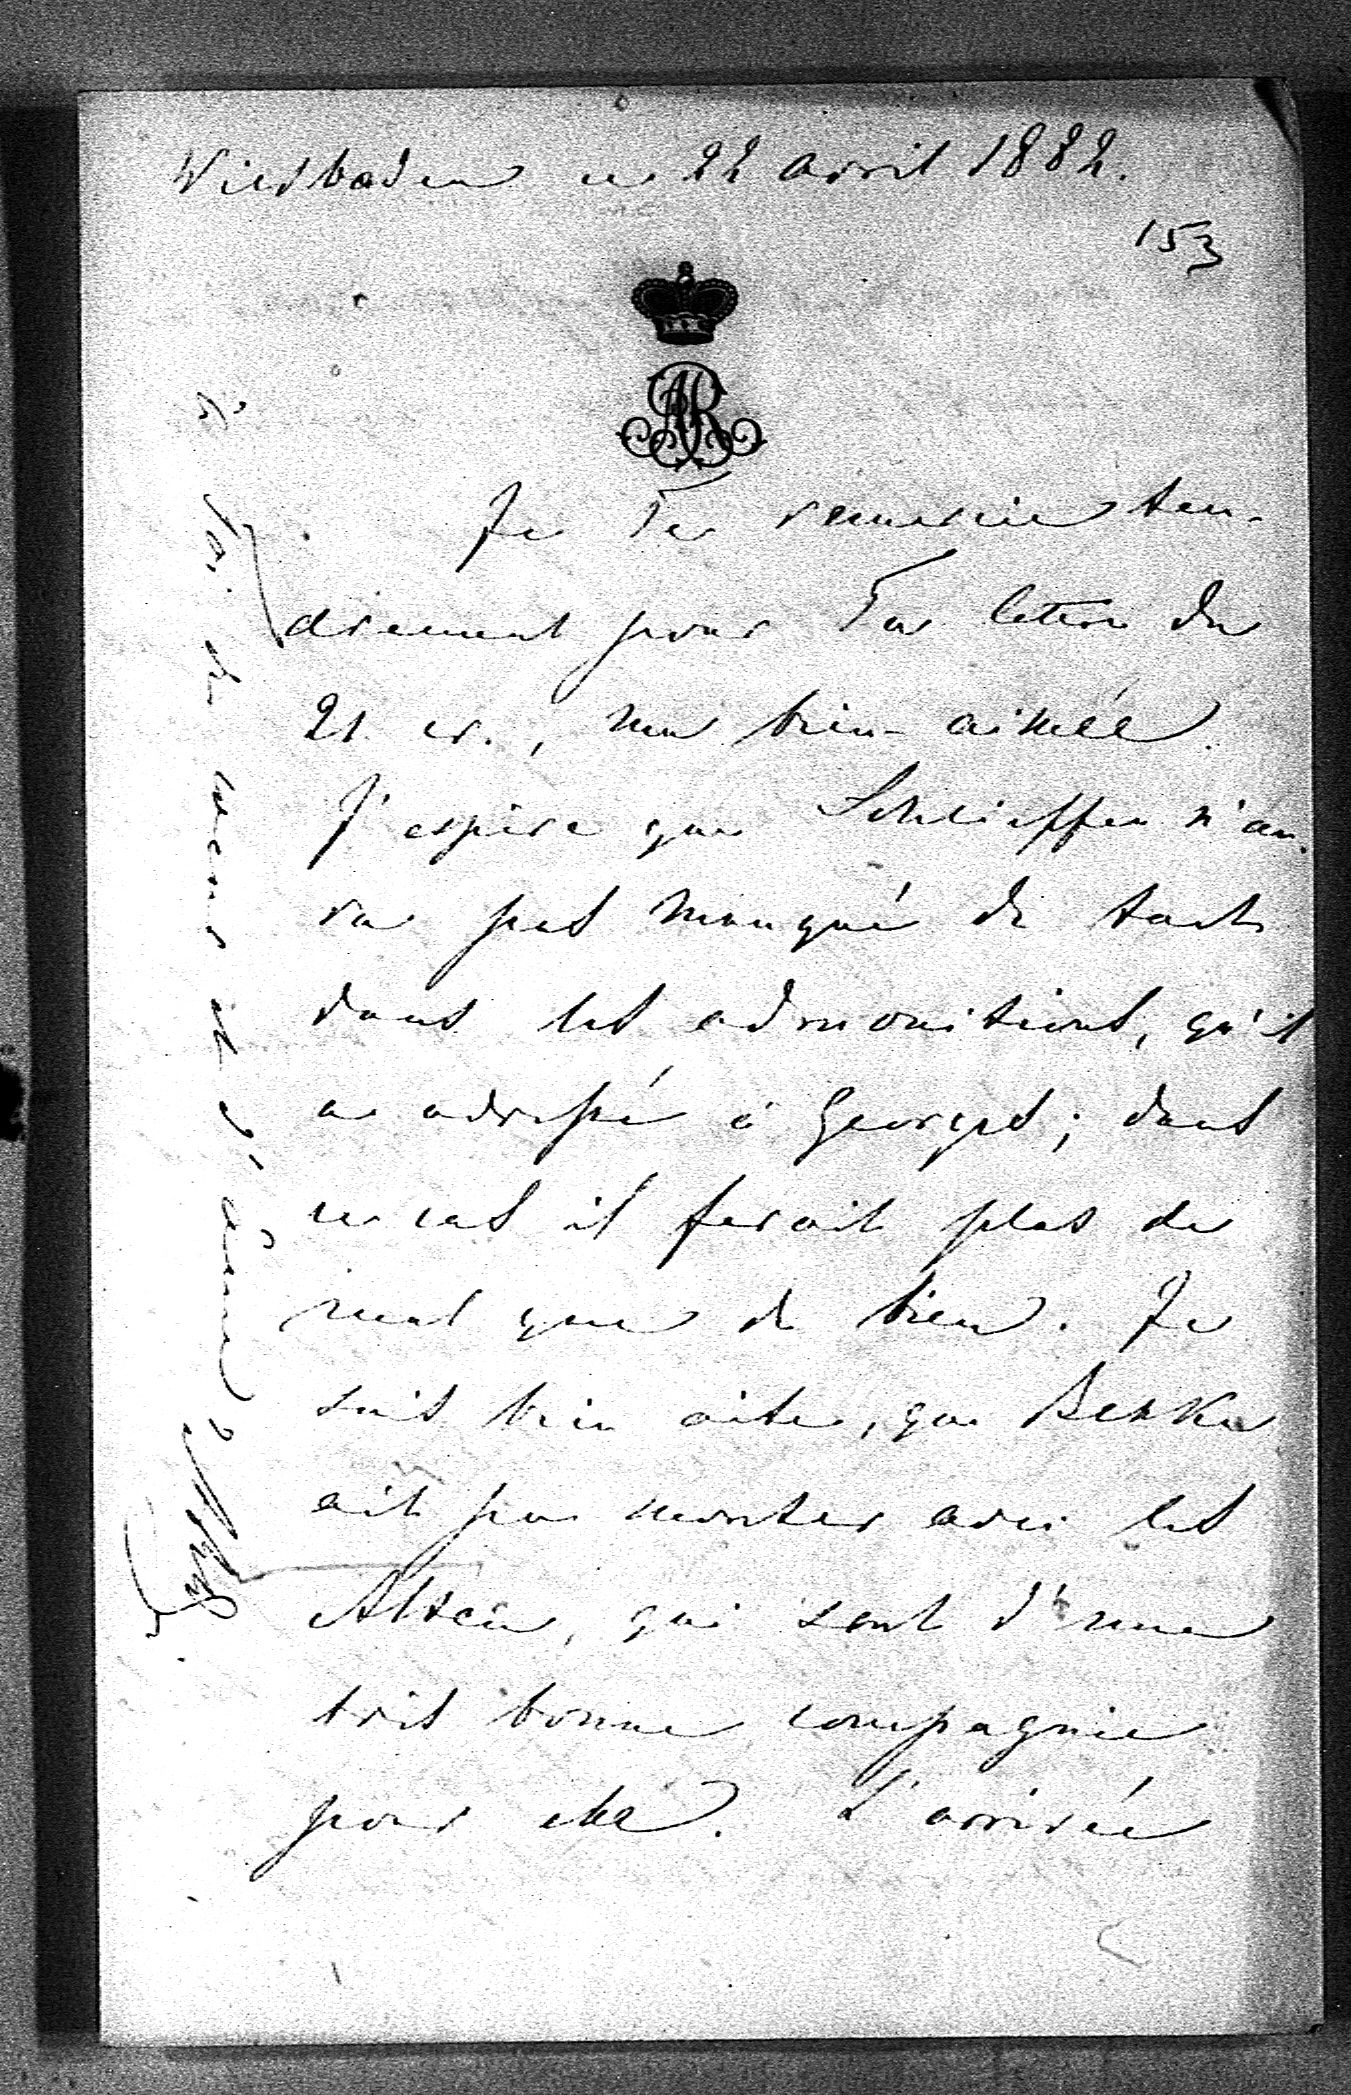 Wiesbaden ce 22 avril 1882.
153
AR
Je Te remercie ten-
drement pour Ta lettre du
21. cr., ma bien-aimée.
J'espère que Schlieffen n'au-
ra pas manqué de tact
dans les admonitions, qu'il
a adressé à Georges; dans
ce cas il ferait plus de
mal que de bien. Je
suis bien aise, que
ait pu monter avec les
Alten, qui sont d'une
très bonne compagnie
pour elle. L'arrivée
à Toi de coeur et d'âme